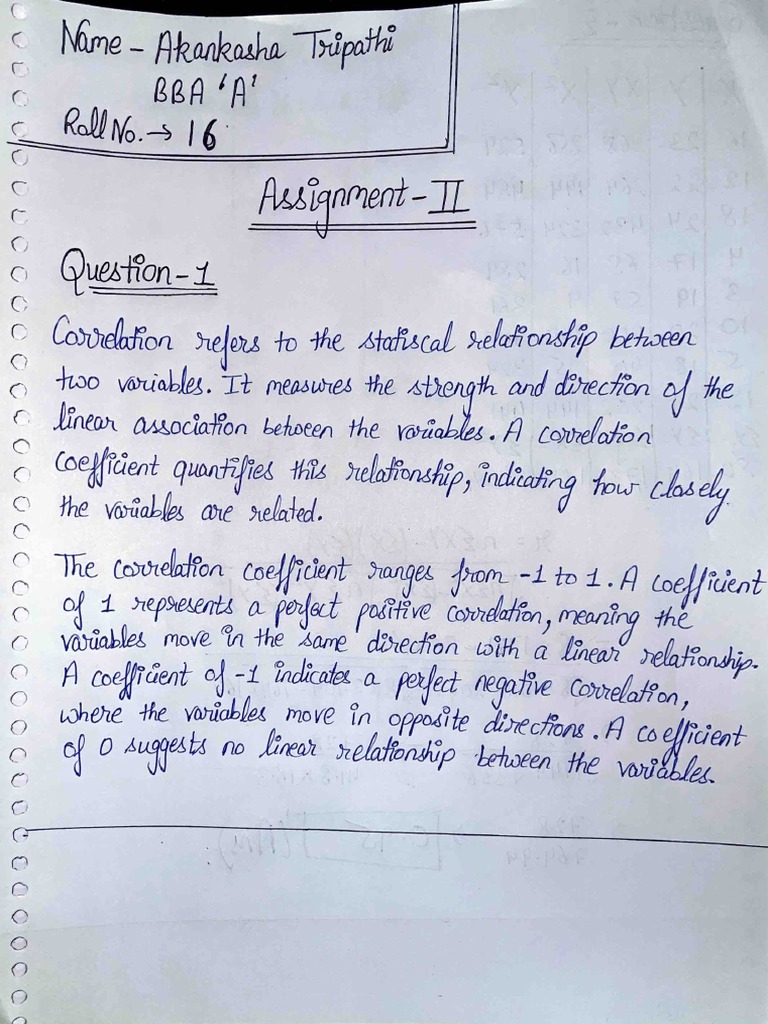 Name - Akankasha Tripathi
BBA 'A'
Roll No. → 16
Assignment - II
Question - 1
Correlation refers to the statiscal relationship between
two variables. It measures the strength and direction of the
linear association between the variables. A correlation
coefficient quantifies this relationship, indicating how closely
the variables are related.
The correlation coefficient ranges from -1 to 1. A coefficient
of 1 represents a perfect positive correlation, meaning the
variables move in the same direction with a linear relationship.
A coefficient of -1 indicates a perfect negative correlation,
where the variables move in opposite directions. A coefficient
of 0 suggests no linear relationship between the variables.